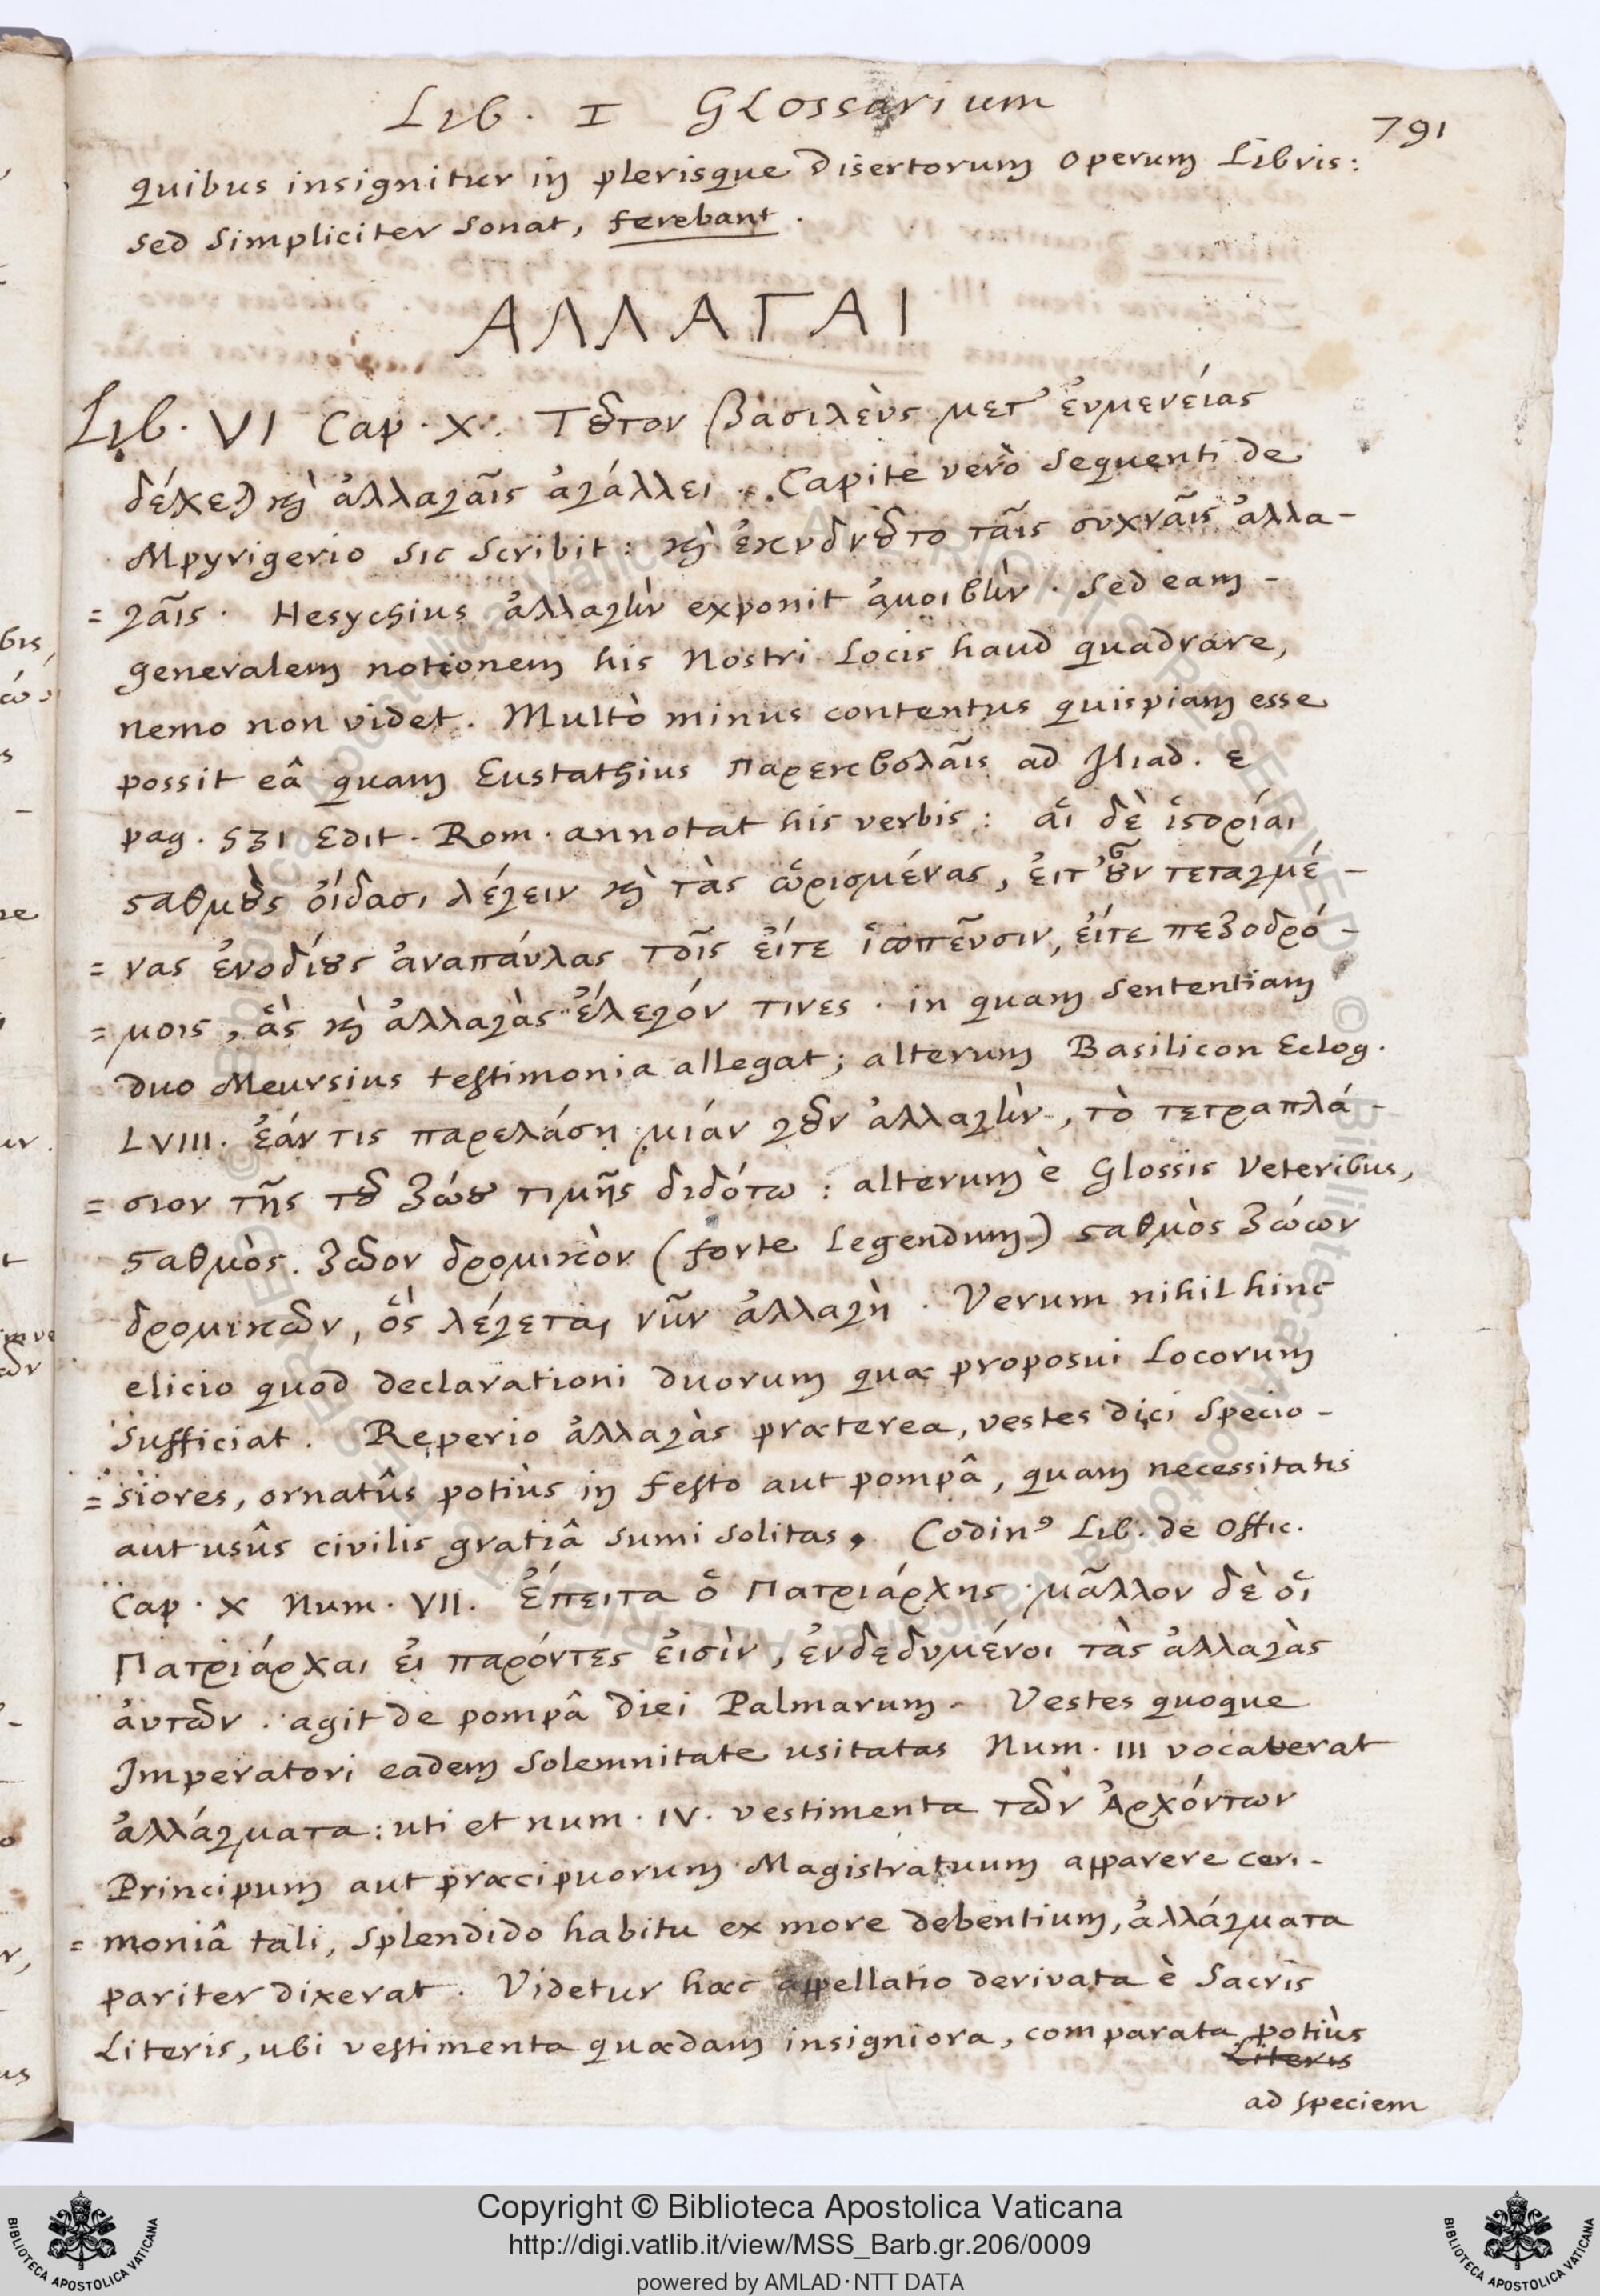 Lib. I Glossarium
791
quibus insignitur in plerisque disertorum operum Libris:
sed simpliciter sonat, ferebant.
ΑΛΛΑΓΑΙ
Lib. VI Cap. X. Τȣ͂τον βασιλὲυς μετ' ἐυμενέιας
δέχεϑ ϗ̀ ἀλλαγᾶις ἀγάλλει. Capite verò sequenti de
Mpyrigerio sic scribit: ϗ̀ ἐκυδνȣ͂το ταῖς συχνᾶις ἀλλα-
= γᾶις. Hesychius ἀλλαγὴν exponit ἀμοιβὴν. Sed eam-
generalem notionem his Nostri Locis haud quadrare,
nemo non videt. Multò minus contentus quispiam esse
possit eâ quam Eustathius παρεκβολᾶις ad Iliad. ε
pag. 531 Edit. Rom. annotat his verbis: ἁι δὲ ἱϛορίαι
ϛαθμȣ̀ς ὀίδασι λέγειν ϗ̀ τὰς ὡρισμένας, ἐιτ' ȣ͂ν τεταγμέ-
= νας ἐνοδίȣς ἀναπάυλας τοῖς ἐίτε ἱππεῦσιν, ἐίτε πεζοδρό-
= μοις, ἃς ϗ̀ ἀλλαγὰς ἔλεγόν τινες. in quam sententiam
duo Meursius testimonia allegat; alterum Basilicon Eclog.
LVIII. ἐάν τις παρελάσῃ μιάν γȣ͂ν ἀλλαγὴν, τὸ τετραπλά-
= σιον τῆς τȣ͂ ζώȣ τιμῆς διδότω: alterum è Glossis Veteribus,
ϛαθμὸς. ζῶον δρομικὸν (forte Legendum) ϛαθμὸς ζώων
δρομικῶν, ὃς λέγεται νῦν ἀλλαγὴ. Verum nihil hinc
elicio quod declarationi duorum quæ proposui Locorum
sufficiat. Reperio ἀλλαγὰς præterea, vestes dici specio-
= siores, ornatûs potiùs in festo aut pompâ, quam necessitatis
aut usûs civilis gratiâ sumi solitas. Codinꝰ Lib. de Offic.
Cap. X Num. VII. Ἔπειτα ὁ Πατριάρχης μᾶλλον δὲ ὁι
Πατριάρχαι ἐι παρόντες ἐισὶν, ἐνδεδυμένοι τὰς ἀλλαγὰς
ἀυτῶν. agit de pompâ Diei Palmarum. Vestes quoque
Imperatori eadem Solemnitate usitatas Num. III vocaverat
ἀλλάγματα: uti et num. IV. vestimenta τῶν Ἀρχόντων
Principum aut præcipuorum Magistratuum apparere ceri-
= moniâ tali, splendido habitu ex more debentium, ἀλλάγματα
pariter dixerat. Videtur hæc appellatio derivata è Sacris
Literis, ubi vestimenta quædam insigniora, comparata potiùs
Literis
ad speciem
Copyright © Biblioteca Apostolica Vaticana
http://digi.vatlib.it/view/MSS_Barb.gr.206/0009
powered by AMLAD·NTT DATA